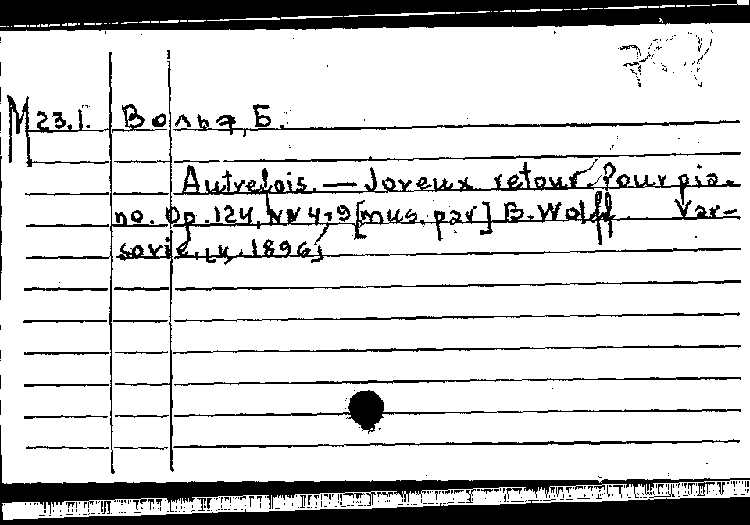 M 23.1. Вольф, Б.
Autrefois. — Joyeux retour. Pour pia-
no. Op. 124, NN 4, 9 [mus. par] B. Wolff Var-
sovie, 1896;